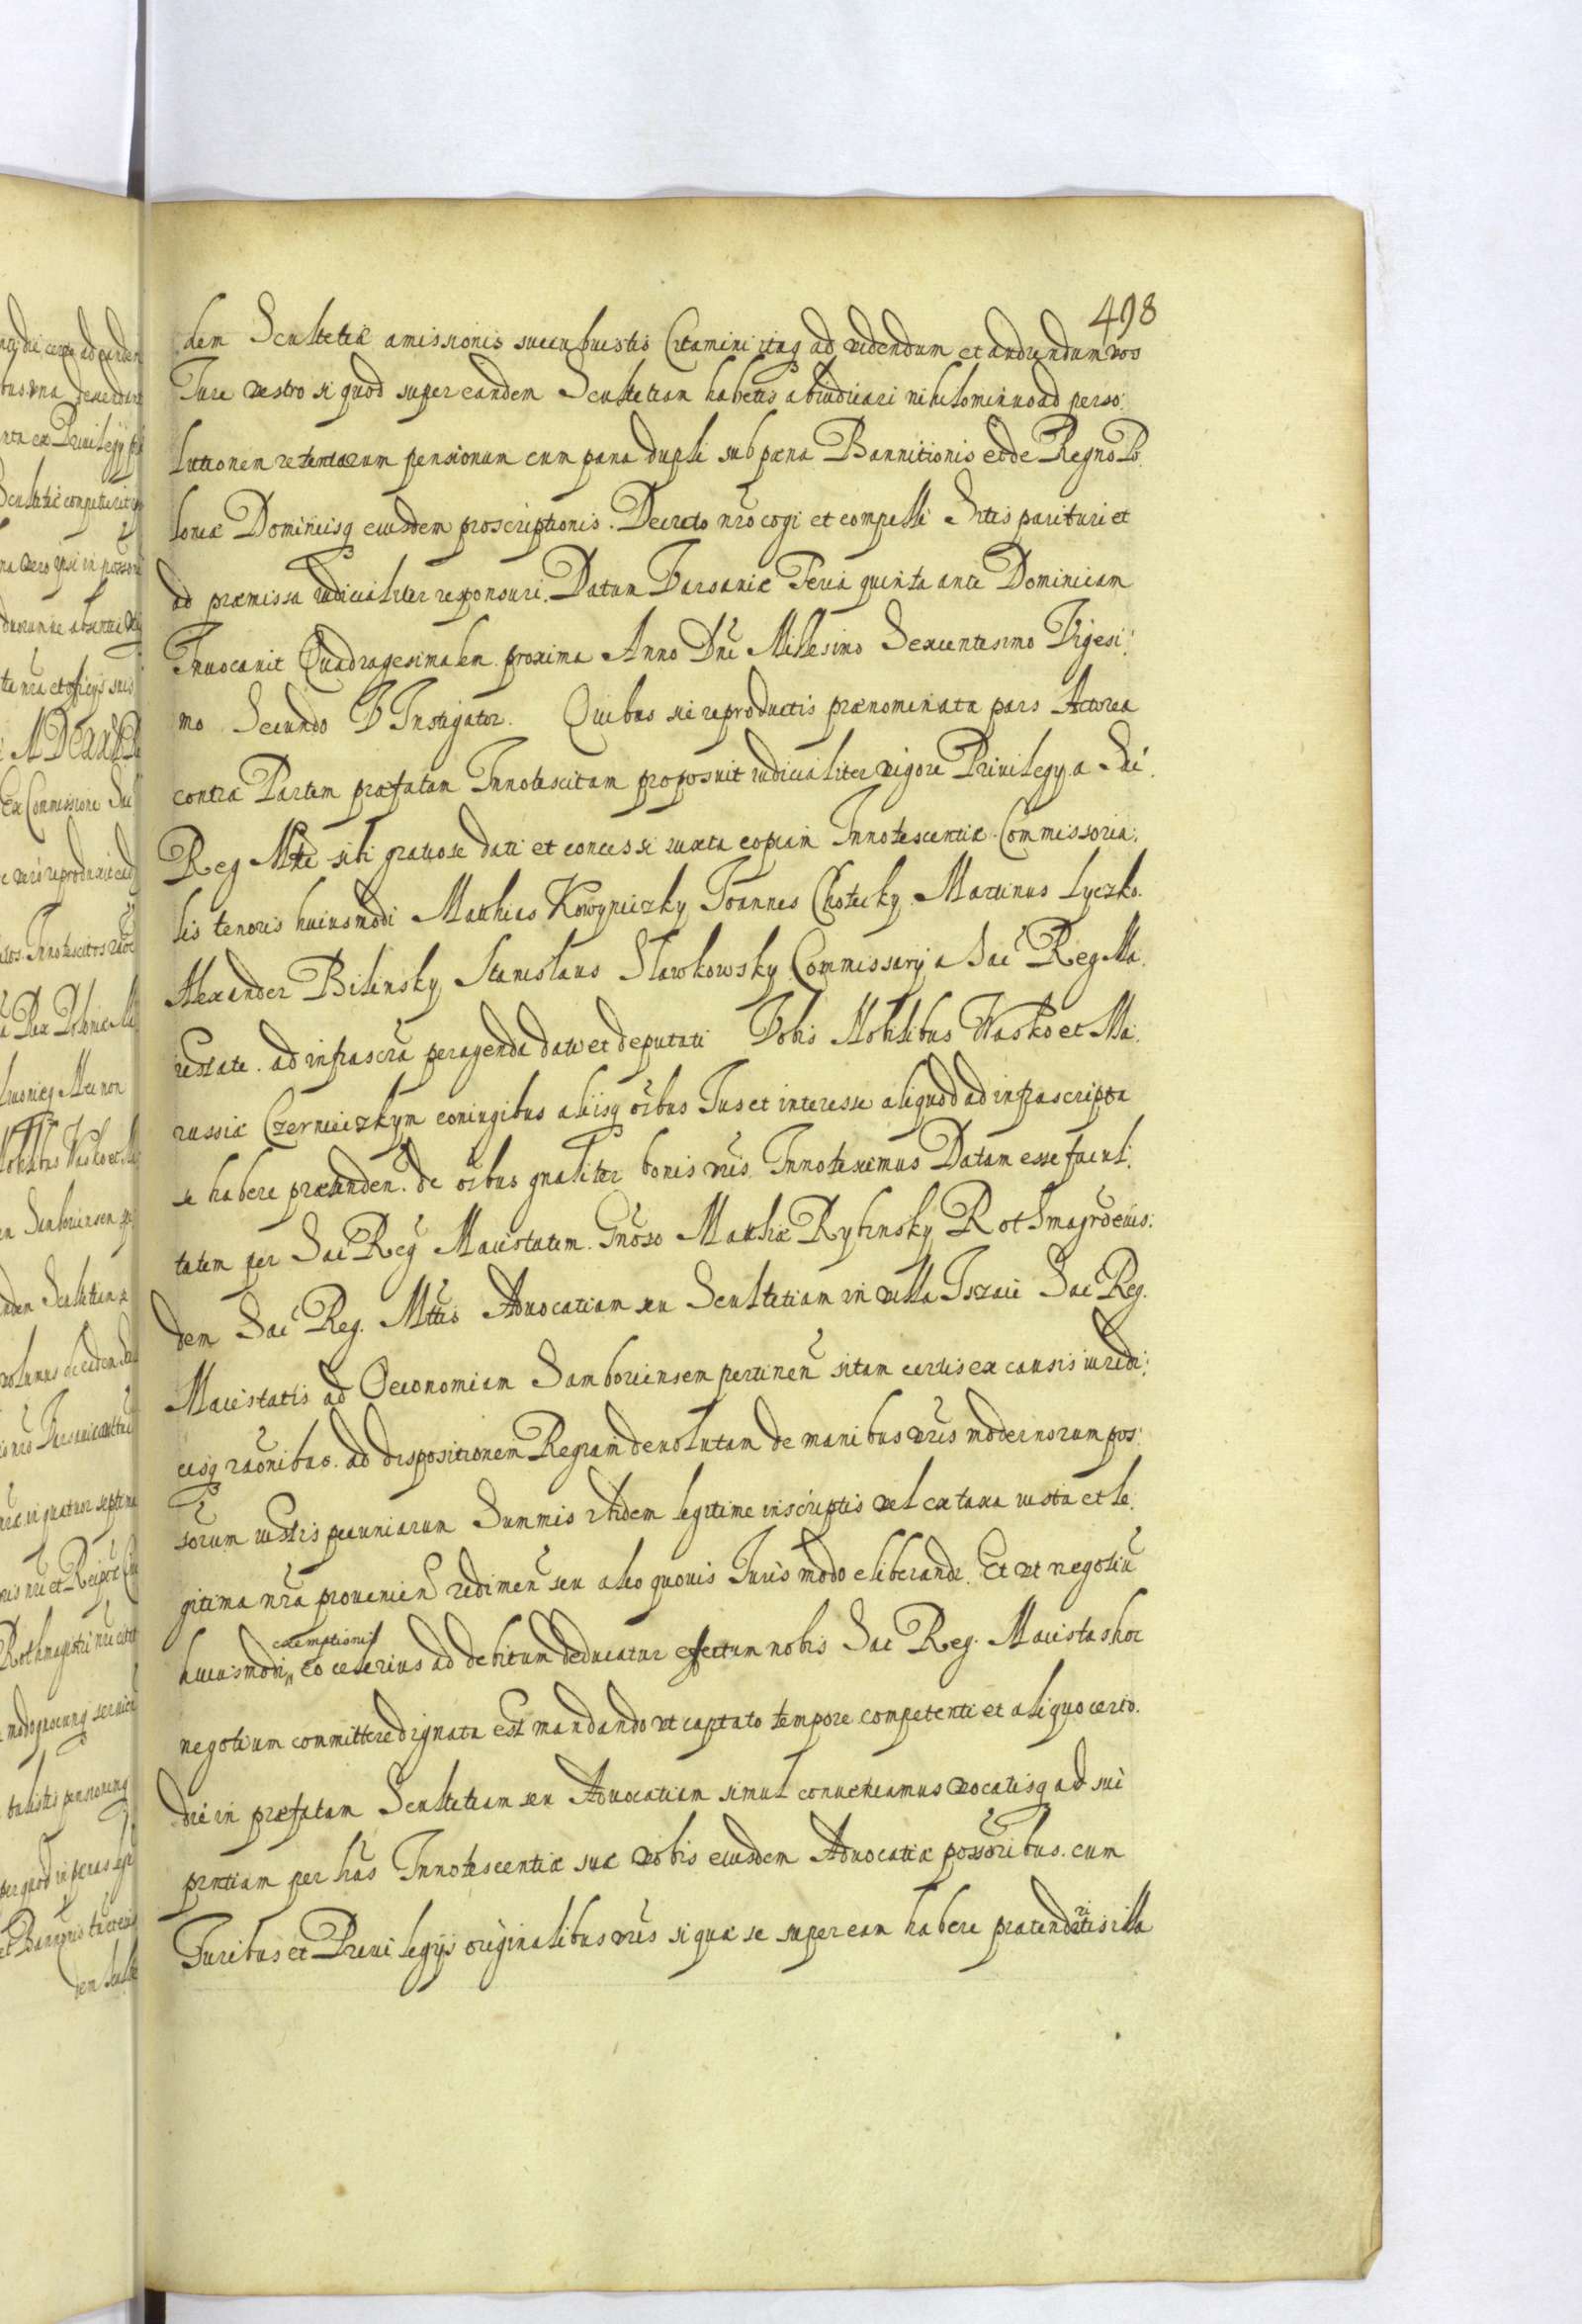 498
dem Scultetiæ amissionis succubuistis Citamini itaq ad videndum et audiendum vos
Iure vestro si quod super eandem Scultetiam habetis abiudicari nihilominus ad perso:
lutionem retentarum pensionum cum pæna dupli sub pæna Bannitionis et de Regno Po:
loniæ Dominijsq eiusdem proscriptionis. Decreto nrõ cogi et compelli Sitis parituri et
ad præmissa iudicialiter responsuri. Datum Varsaviæ Feria quinta ante Dominicam
Invocavit Quadragesimalem proxima Anno Dni Millesimo Sexcentesimo Vigesi:
mo Secundo Instigator. Quibus sic reproductis prænominata pars Actorea
contra Partem præfatam Innotescitam proposuit iudicialiter vigore Privilegy a Sac:
Reg Mtte sibi gratiose dati et concessi iuxta copiam Innotescentiæ Commissoria:
lis tenoris huiusmodi Matthias Kowyniczky Joannes Chotecky Martinus Lyczko.
Alexander Bilinsky Stanislaus Slawkowsky Commissarij a Sac Reg Ma:
iestate. ad infrascra peragenda dati et deputati Vobis Nobilibus Wasko et Ma:
russiæ Czernieiczkym coniugibus alijsq oibus Ius et interesse aliquod ad infrascripta
se habere prætenden. de oibus gnaliter bonis vris. Innotescimus Datam esse facul:
tatem per Sac Reg Maiestatem. Gnoso Matthiæ Rybinsky Rotsmagro eius:
dem Sac Reg. Mttis Advocatiam seu Scultetiam in villa Iszaie Sac Reg.
Maiestatis ad Oeconomiam Samboriensem pertinen sitam certis ex causis iuredi:
cisq raonibus. ad dispositionem Regiam devolutam de manibus vris modernorum pos:
sorum iustis pecuniarum Summis ibidem legitime inscriptis vel ex taxa iusta et le:
gitima nra provenien redimen seu alio quovis Iuris modo eliberandi. Et ut negotiu
huiusmodi exemptionis eo celerius ad debitum deducatur effectum nobis Sac Reg. Maiestas hoc
negotium committere dignata est mandando ut captato tempore competenti et aliquo certo.
die in præfatam Scultetiam seu Advocatiam simul conveniamus vocatisq ad sui
pntiam per has Innotescentiæ suæ vobis eiusdem Advocatiæ possoribus. cum
Iuribus et Privilegijs originalibus vris si quæ se super eam habere prætenderitis illa